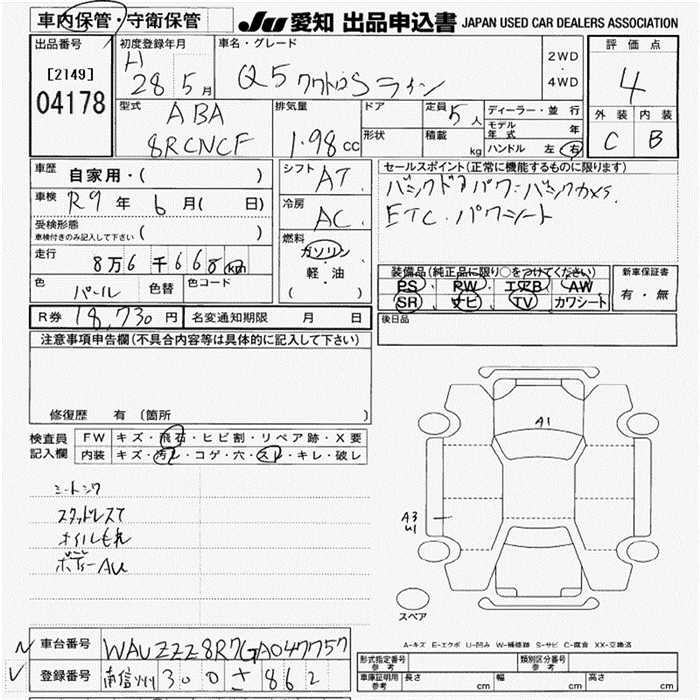 車内保管・守衛保管
JU 愛知 出品申込書 JAPAN USED CAR DEALERS ASSOCIATION
出品番号
[2149]
04178
初度登録年月
H 28年 5月
車名・グレード
Q5 クワトロSライン
2WD・4WD
評価点
4
外装 内装
C B
型式
ABA
8RCNCF
排気量
1.98 cc
ドア
形状
定員 5人
積載 kg
ディーラー・並行
モデル年式 年
ハンドル 左 右
車歴 自家用・( )
車検 R9年 6月( 日)
受検形態
車検付きのみ記入して下さい ( )
走行 8万6千668km
色 パール 色替 色コード
シフト AT
冷房 AC
燃料
ガソリン
軽・油
( )
セールスポイント(正常に機能するものに限ります)
バックドアパワー・バックカメラ
ETC・パワーシート
装備品(純正品に限り○をつけてください)
PS PW エアB AW
SR ナビ TV カワシート
新車保証書
有・無
後日品
R券 18,730円 名変通知期限 月 日
注意事項申告欄(不具合内容等は具体的に記入して下さい)
修復歴 有 (箇所 )
検査員記入欄
FW キズ・飛石・ヒビ割・リペア跡・X要
内装 キズ・汚レ・コゲ・穴・スレ・キレ・破レ
スタッドレスT
オイルもれ
A1
A3
U1
スペア
A-キズ E-エクボ U-凹み W-補修跡 S-サビ C-腐食 XX-交換済
N
V
車台番号 WAUZZZ8R7GA047757
登録番号 300 さ 862
形式指定番号 参考
類別区分番号 参考
車庫証明用 参考 長さ cm 幅 cm 高さ cm